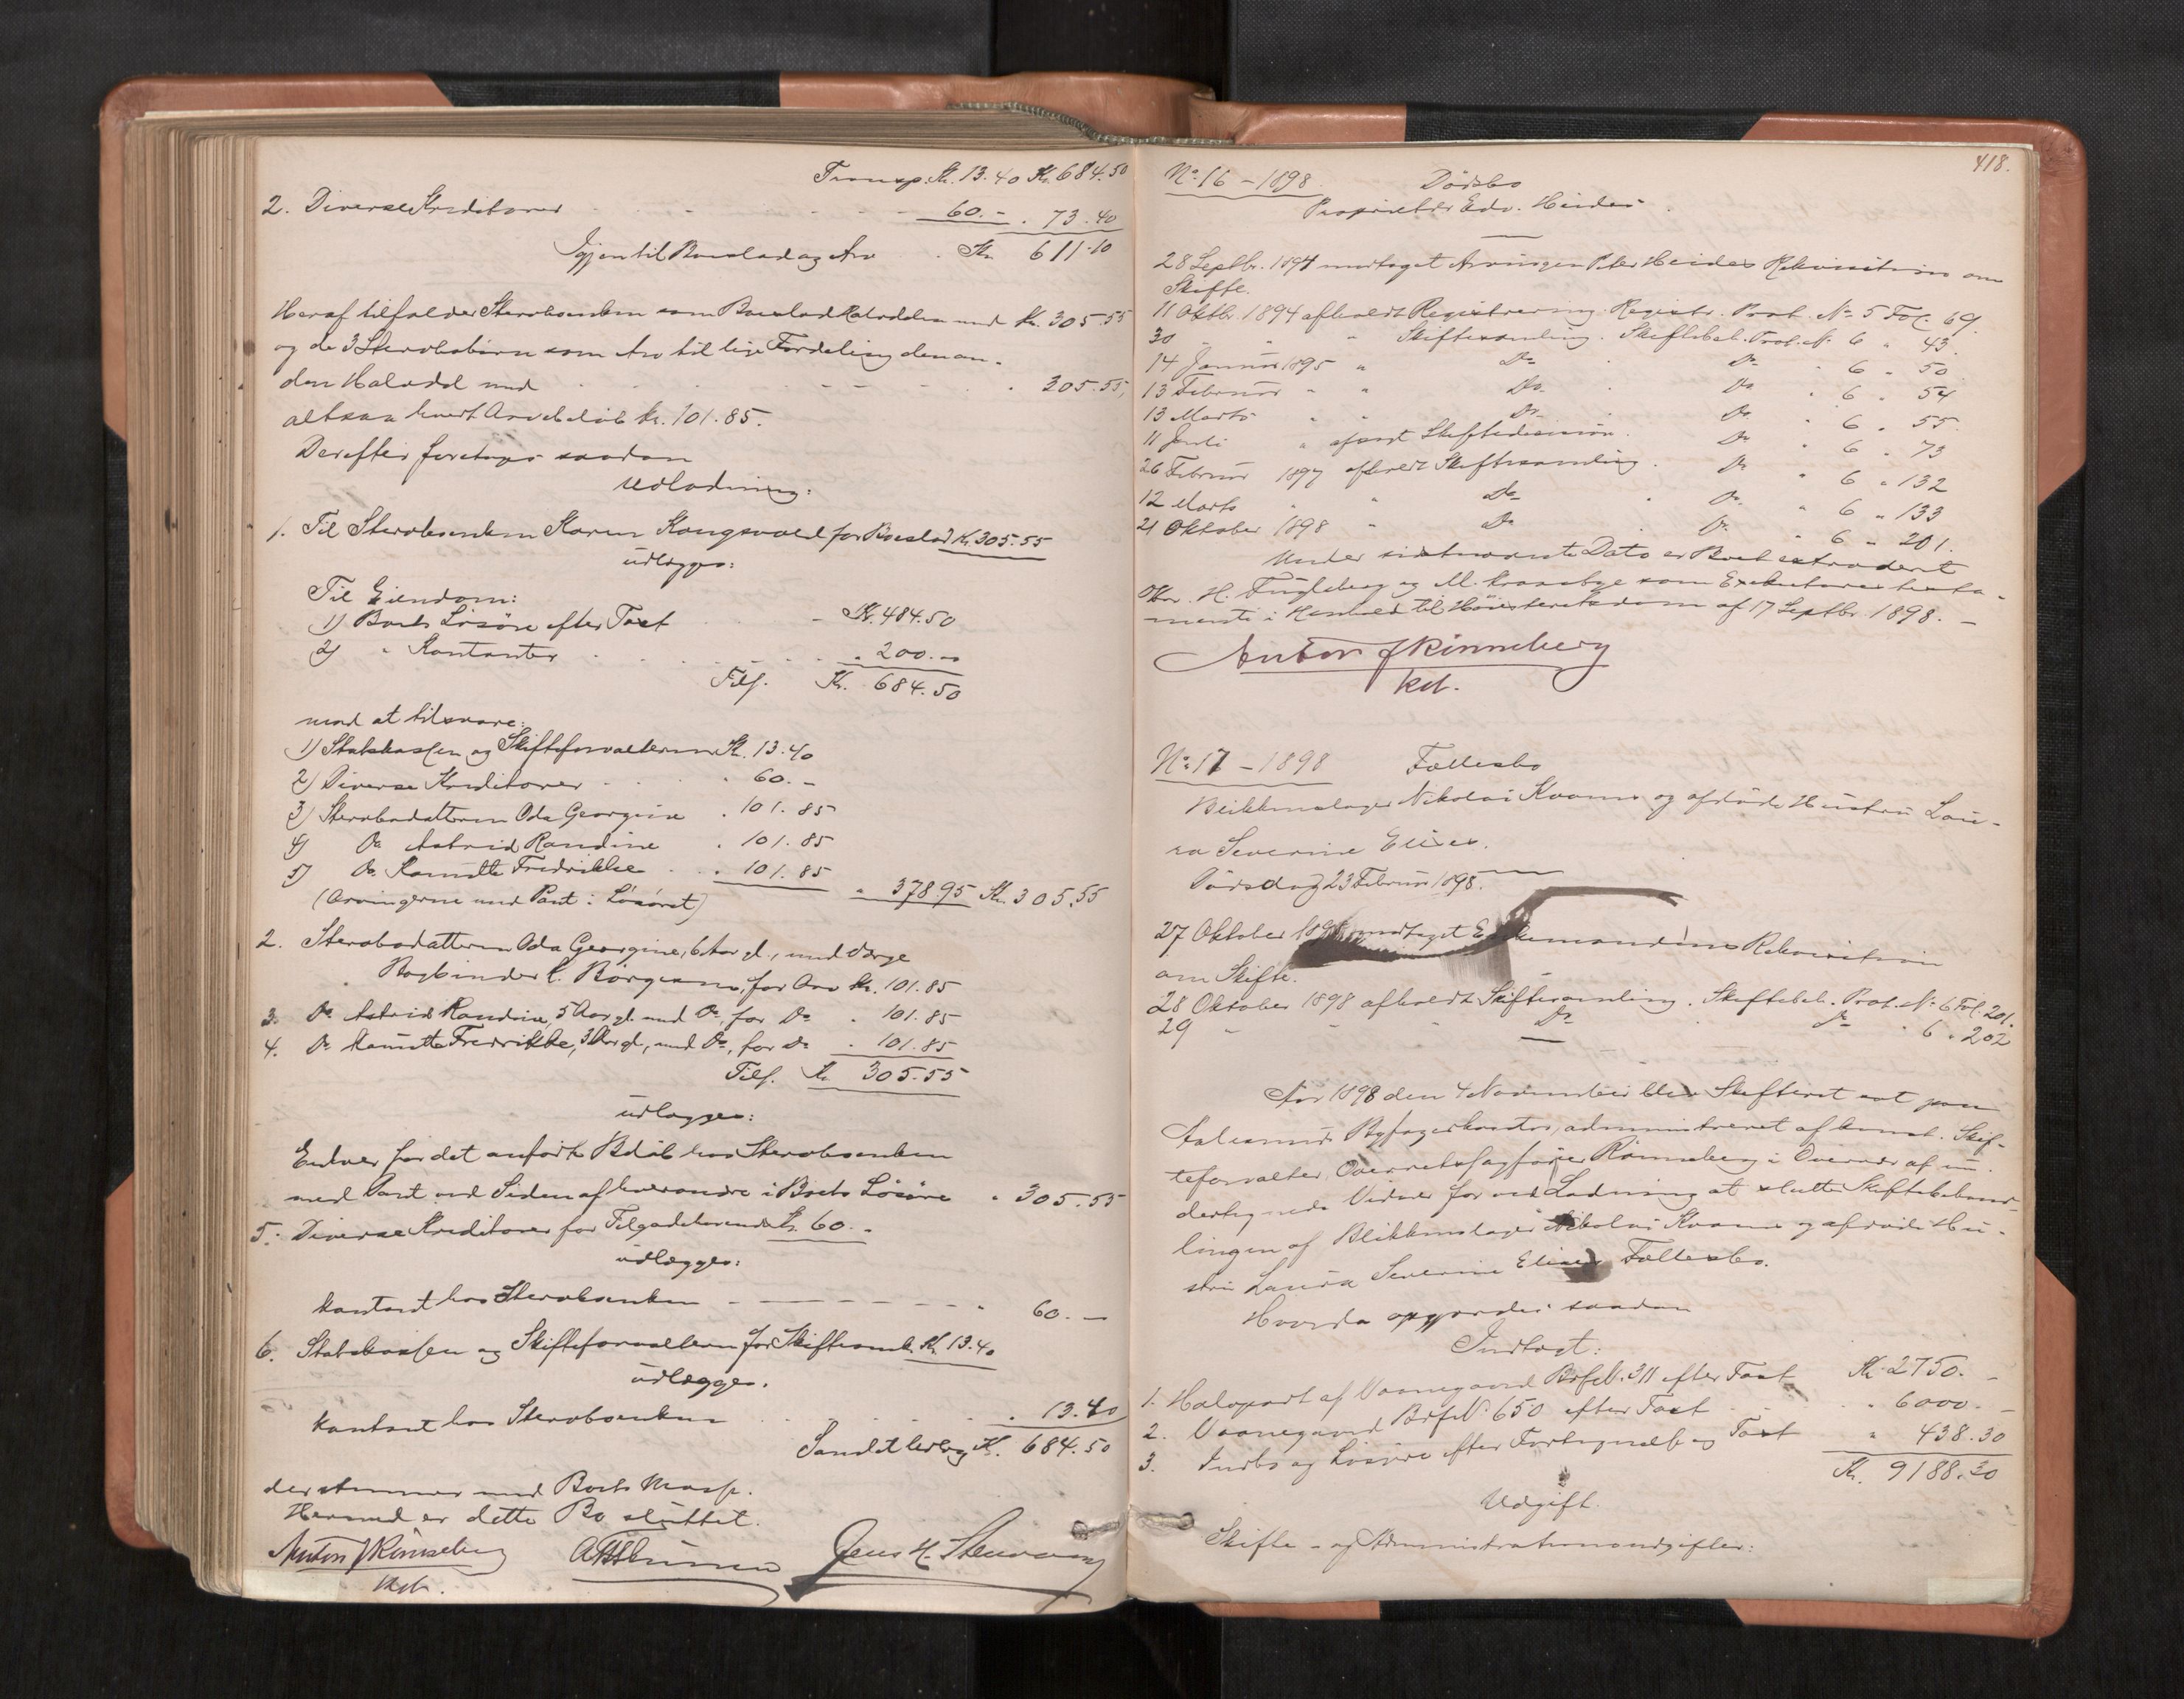 Transp. Kr. 13.40 Kr. 684.50
2. Diverse Kreditorer 60.- . 73.40
Igjen til Boeslod og Arv Kr. 611.10
Heraf tilfalder Sterboenken som Boeslod Halvdelen med Kr. 305.55
og de 3 Sterbobørn som Arv til lige Fordeling den an-
den Halvdel med " 305.55,
altsaa hvert Arvebeløb kr. 101.85.
Derefter foretages saadan
Udlodning:
1. Til Sterboenken Karen Kongsvold for Boeslod Kr. 305.55
udlægges:
Til Eiendom:
1) Boets Løsøre efter Taxt - Kr. 484.50
2) " Kontanter " 200.-
Tils. Kr. 684.50
mod at tilsvare:
1) Statskassen og Skifteforvalteren Kr. 13.40
2) Diverse Kreditorer " 60.-
3) Sterbodatteren Oda Georgine " 101.85
4) Do Astrid Randine " 101.85
5) Do Fredrikke " 101.85
(Arvingerne med Pant i Løsøret) " 378.95 Kr. 305.55
2. Sterbodatteren Oda Georgine, 6 Aar gl., med Værge
Bogbinder L. for Arv Kr. 101.85
3. Do Astrid Randine, 5 Aar gl. med Do, for Do " 101.85
4. Do Fredrikke, 3 Aar gl., med Do, for Do " 101.85
Tils. Kr. 305.55
udlægges:
Enhver for det anførte Beløb hos Sterboenken
med Pant ved Siden af hverandre i Boets Løsøre " 305.55
5. Diverse Kreditorer for Tilgodehavende Kr. 60.-
udlægges:
kontant hos Sterboenken - - - - - - - " 60.-
6. Statskassen og Skifteforvalteren for Skifteomk. Kr. 13.40
udlægges.
kontant hos Sterboenken " 13.40
Samlet Udlæg Kr. 684.50
der stemmer med Boets Masse.
Hermed er dette Bo sluttet.
Anton J Rønneberg Jens H.
kst.
418.
No 16 - 1898. Dødsbo
Proprietær Edv. Heides.
28 Septbr. 1894 modtaget Arvingen Peter Heides Rekvisition om
Skifte.
11 Oktbr. 1894 afholdt Registrering. Registr. Prot. No 5 Fol. 69.
30 " " " Skiftesamling. Skiftebeh. Prot. N. 6 " 43.
14 Januar 1895 " Do Do " 6 " 50.
13 Februar " " Do Do " 6 " 54
13 Marts " " Do Do " 6 " 55.
11 Juli " afsagt Skiftedecision. Do " 6 " 73
26 Februar 1897 afholdt Skiftesamling. Do " 6 " 132
12 Marts " " Do " Do " 6 " 133
21 Oktober 1898 " Do Do " 6 " 201.
Under sidstnævnte Dato er Boet extraderet
H. Fugleberg og M. som Exekutores testa-
menti i Henhold til Høiesteretsdom af 17 Septbr. 1898. -
Anton J Rønneberg
kst.
No 17 - 1898 Fællesbo
Blikkenslager Nikolai Kvams og afdøde Hustru Lau-
ra Severine Elises.
Dødsdag 23 Februar 1898.
27 Oktober 1898 modtaget Enkemandens Rekvisition
om Skifte.
28 Oktober 1898 afholdt Skiftesamling. Skiftebeh. Prot. N. 6 Fol. 201.
29 " " " Do Do " 6 " 202
Aar 1898 den 4 November blev Skifteret sat paa
Aalesunds Byfogedkontor, administreret af konst. Skif-
teforvalter, Overretssagfører Rønneberg i Overvær af un-
dertegnede Vidner for ved Lodning at slutte Skiftebehand-
lingen af Blikkenslager Nikolai Kvams og afdøde Hu-
stru Laura Severine Elises Fællesbo.
Hvorda opgjordes saadan
Indtægt:
1. Halvpart af Vaanegaard N. 311 efter Taxt Kr. 2750.-
2. Vaanegaard N. 650 efter Taxt " 6000.-
3. Indbo og Løsøre efter Fortegnelse og Taxt " 438.30
Kr. 9188.30
Udgift.
Skifte- og Administrationsudgifter: